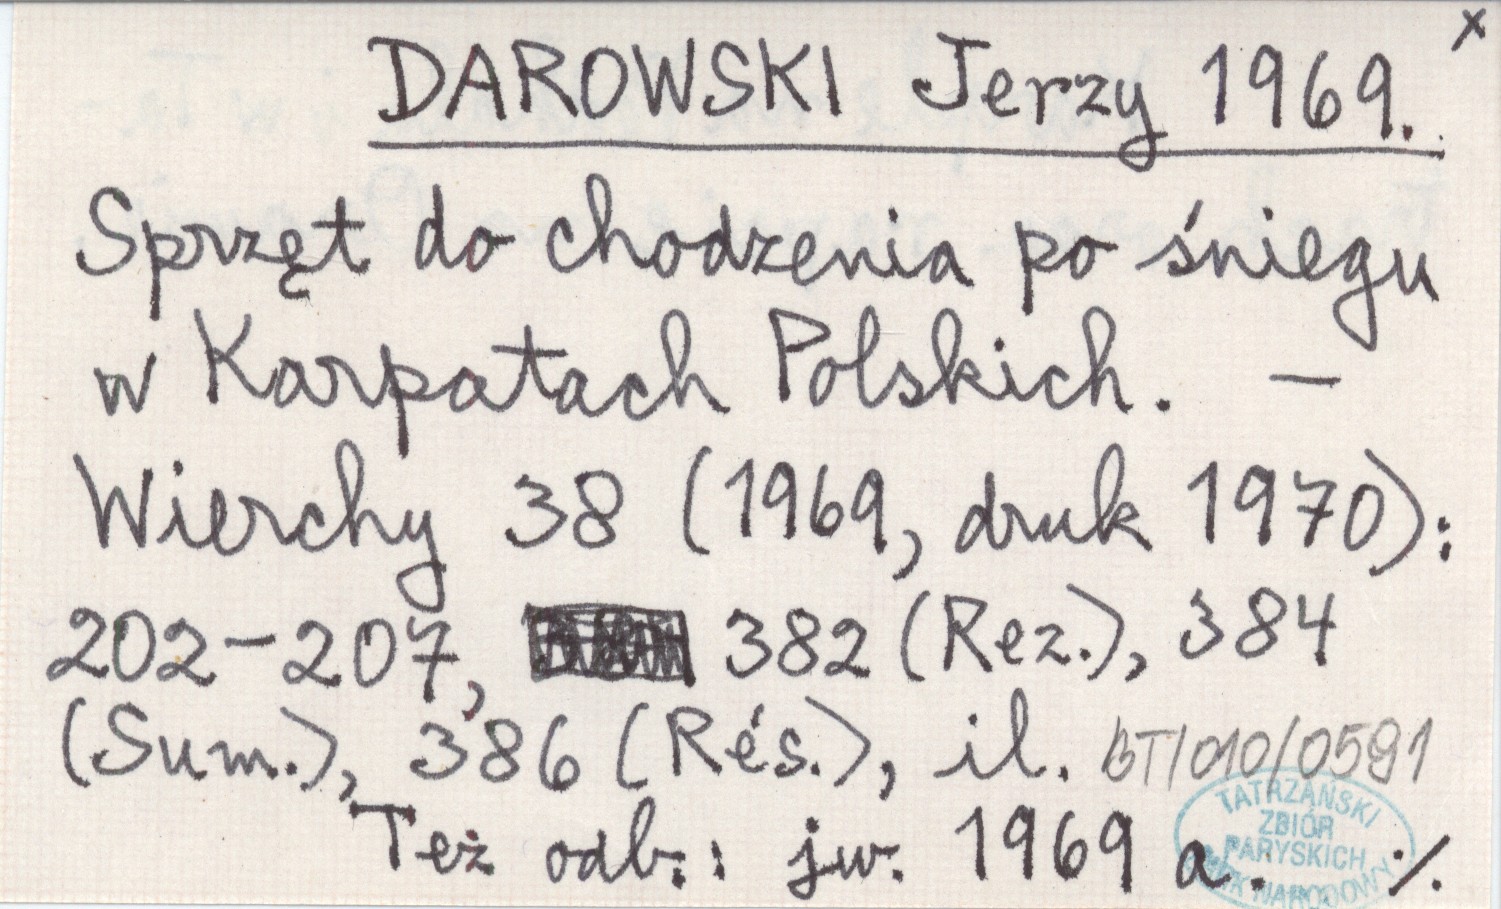 x
DAROWSKI Jerzy 1969.
Sprzęt do chodzenia po śniegu
w Karpatach Polskich. —
Wierchy 38 (1969, druk 1970):
202-207, 382 (Rez.), 384
(Sum.), 386 (Rés.), il. BT/010/0591
Też odb.: jw. 1969 a. ·/.
TATRZAŃSKI
ZBIÓR
PARYSKICH
PARK NARODOWY